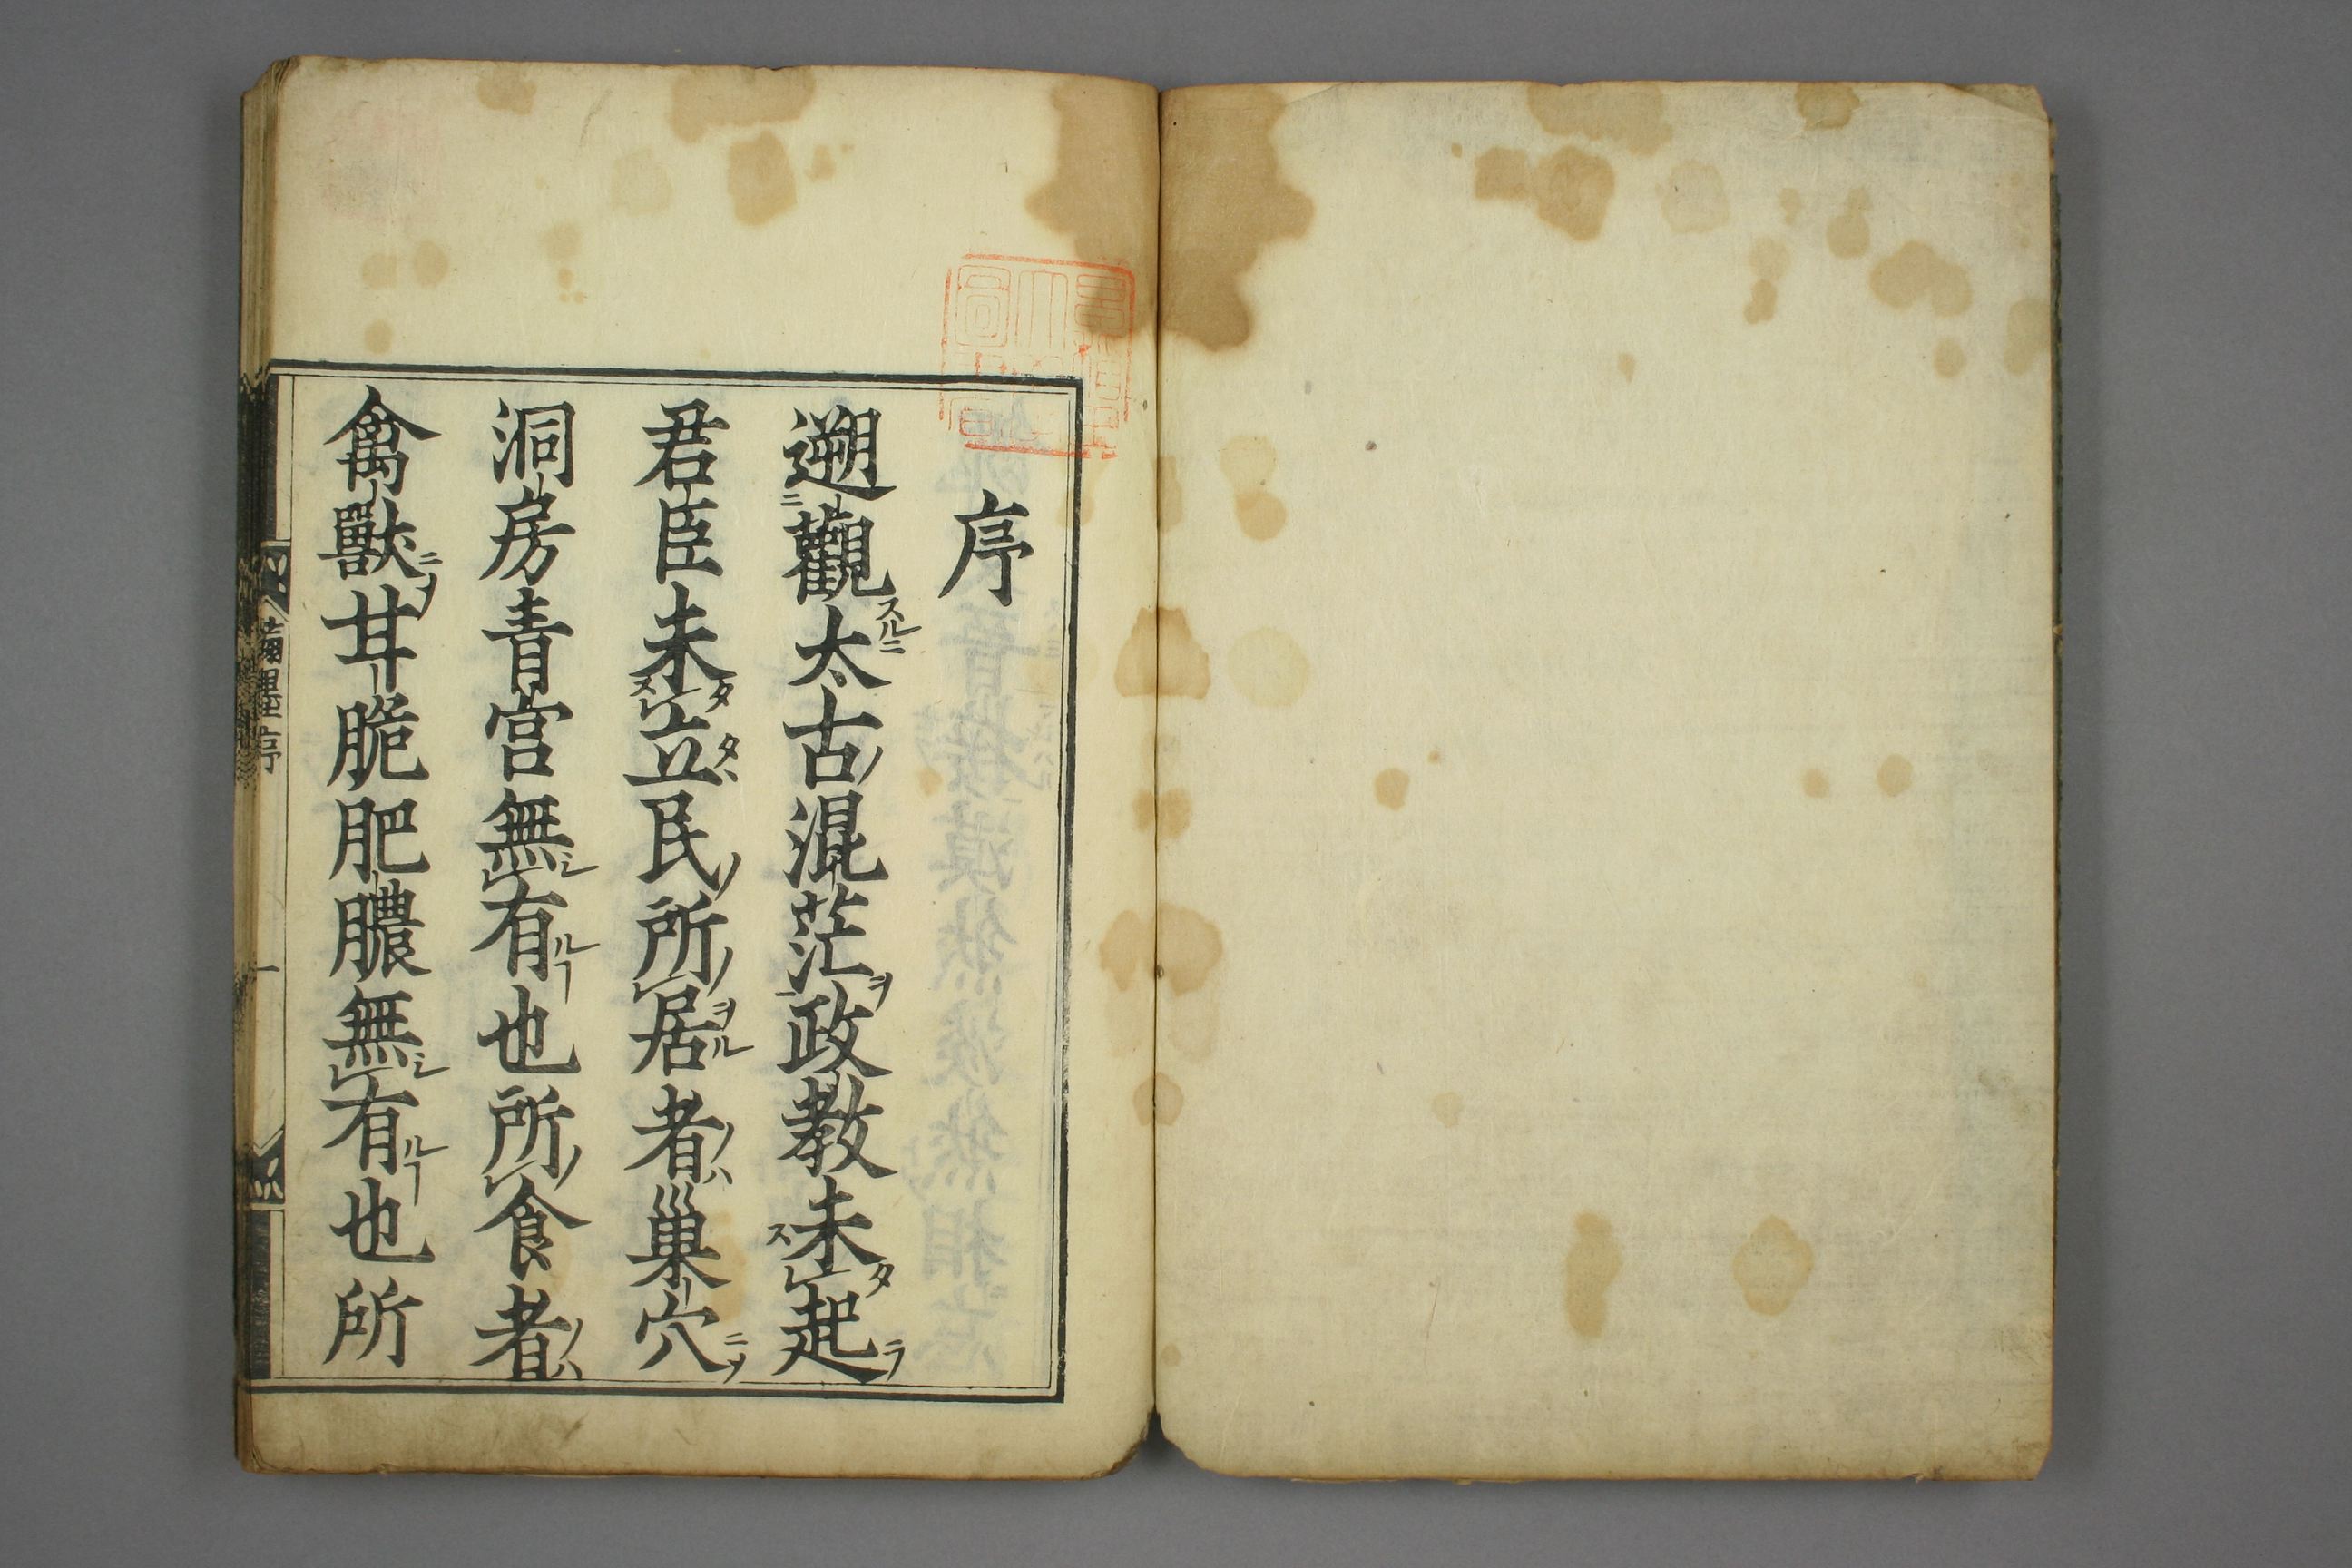 序
遡觀太古混茫政教未起
君臣未立民所居者巢穴
洞房青宮無有也所食者
禽獸甘脆肥膿無有也所